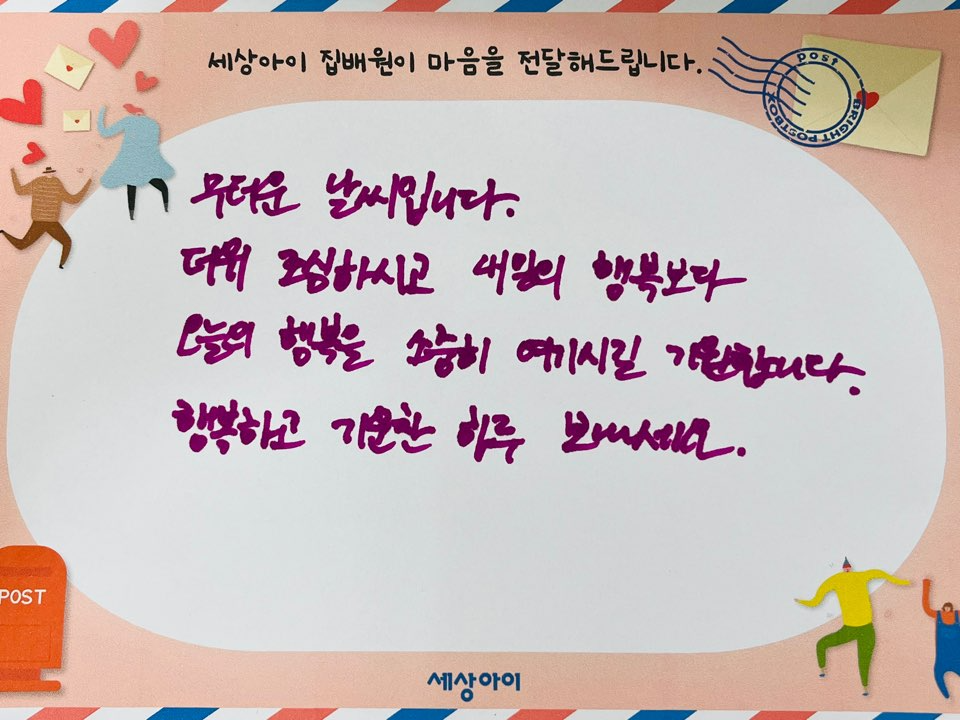 세상아이 집배원이 마음을 전달해드립니다.
Post
BRIGHT POSTBOX
무더운 날씨입니다.
더위 조심하시고 내일의 행복보다
오늘의 행복을 소중히 여기시길 기원합니다.
행복하고 기운찬 하루 보내세요.
POST
세상아이